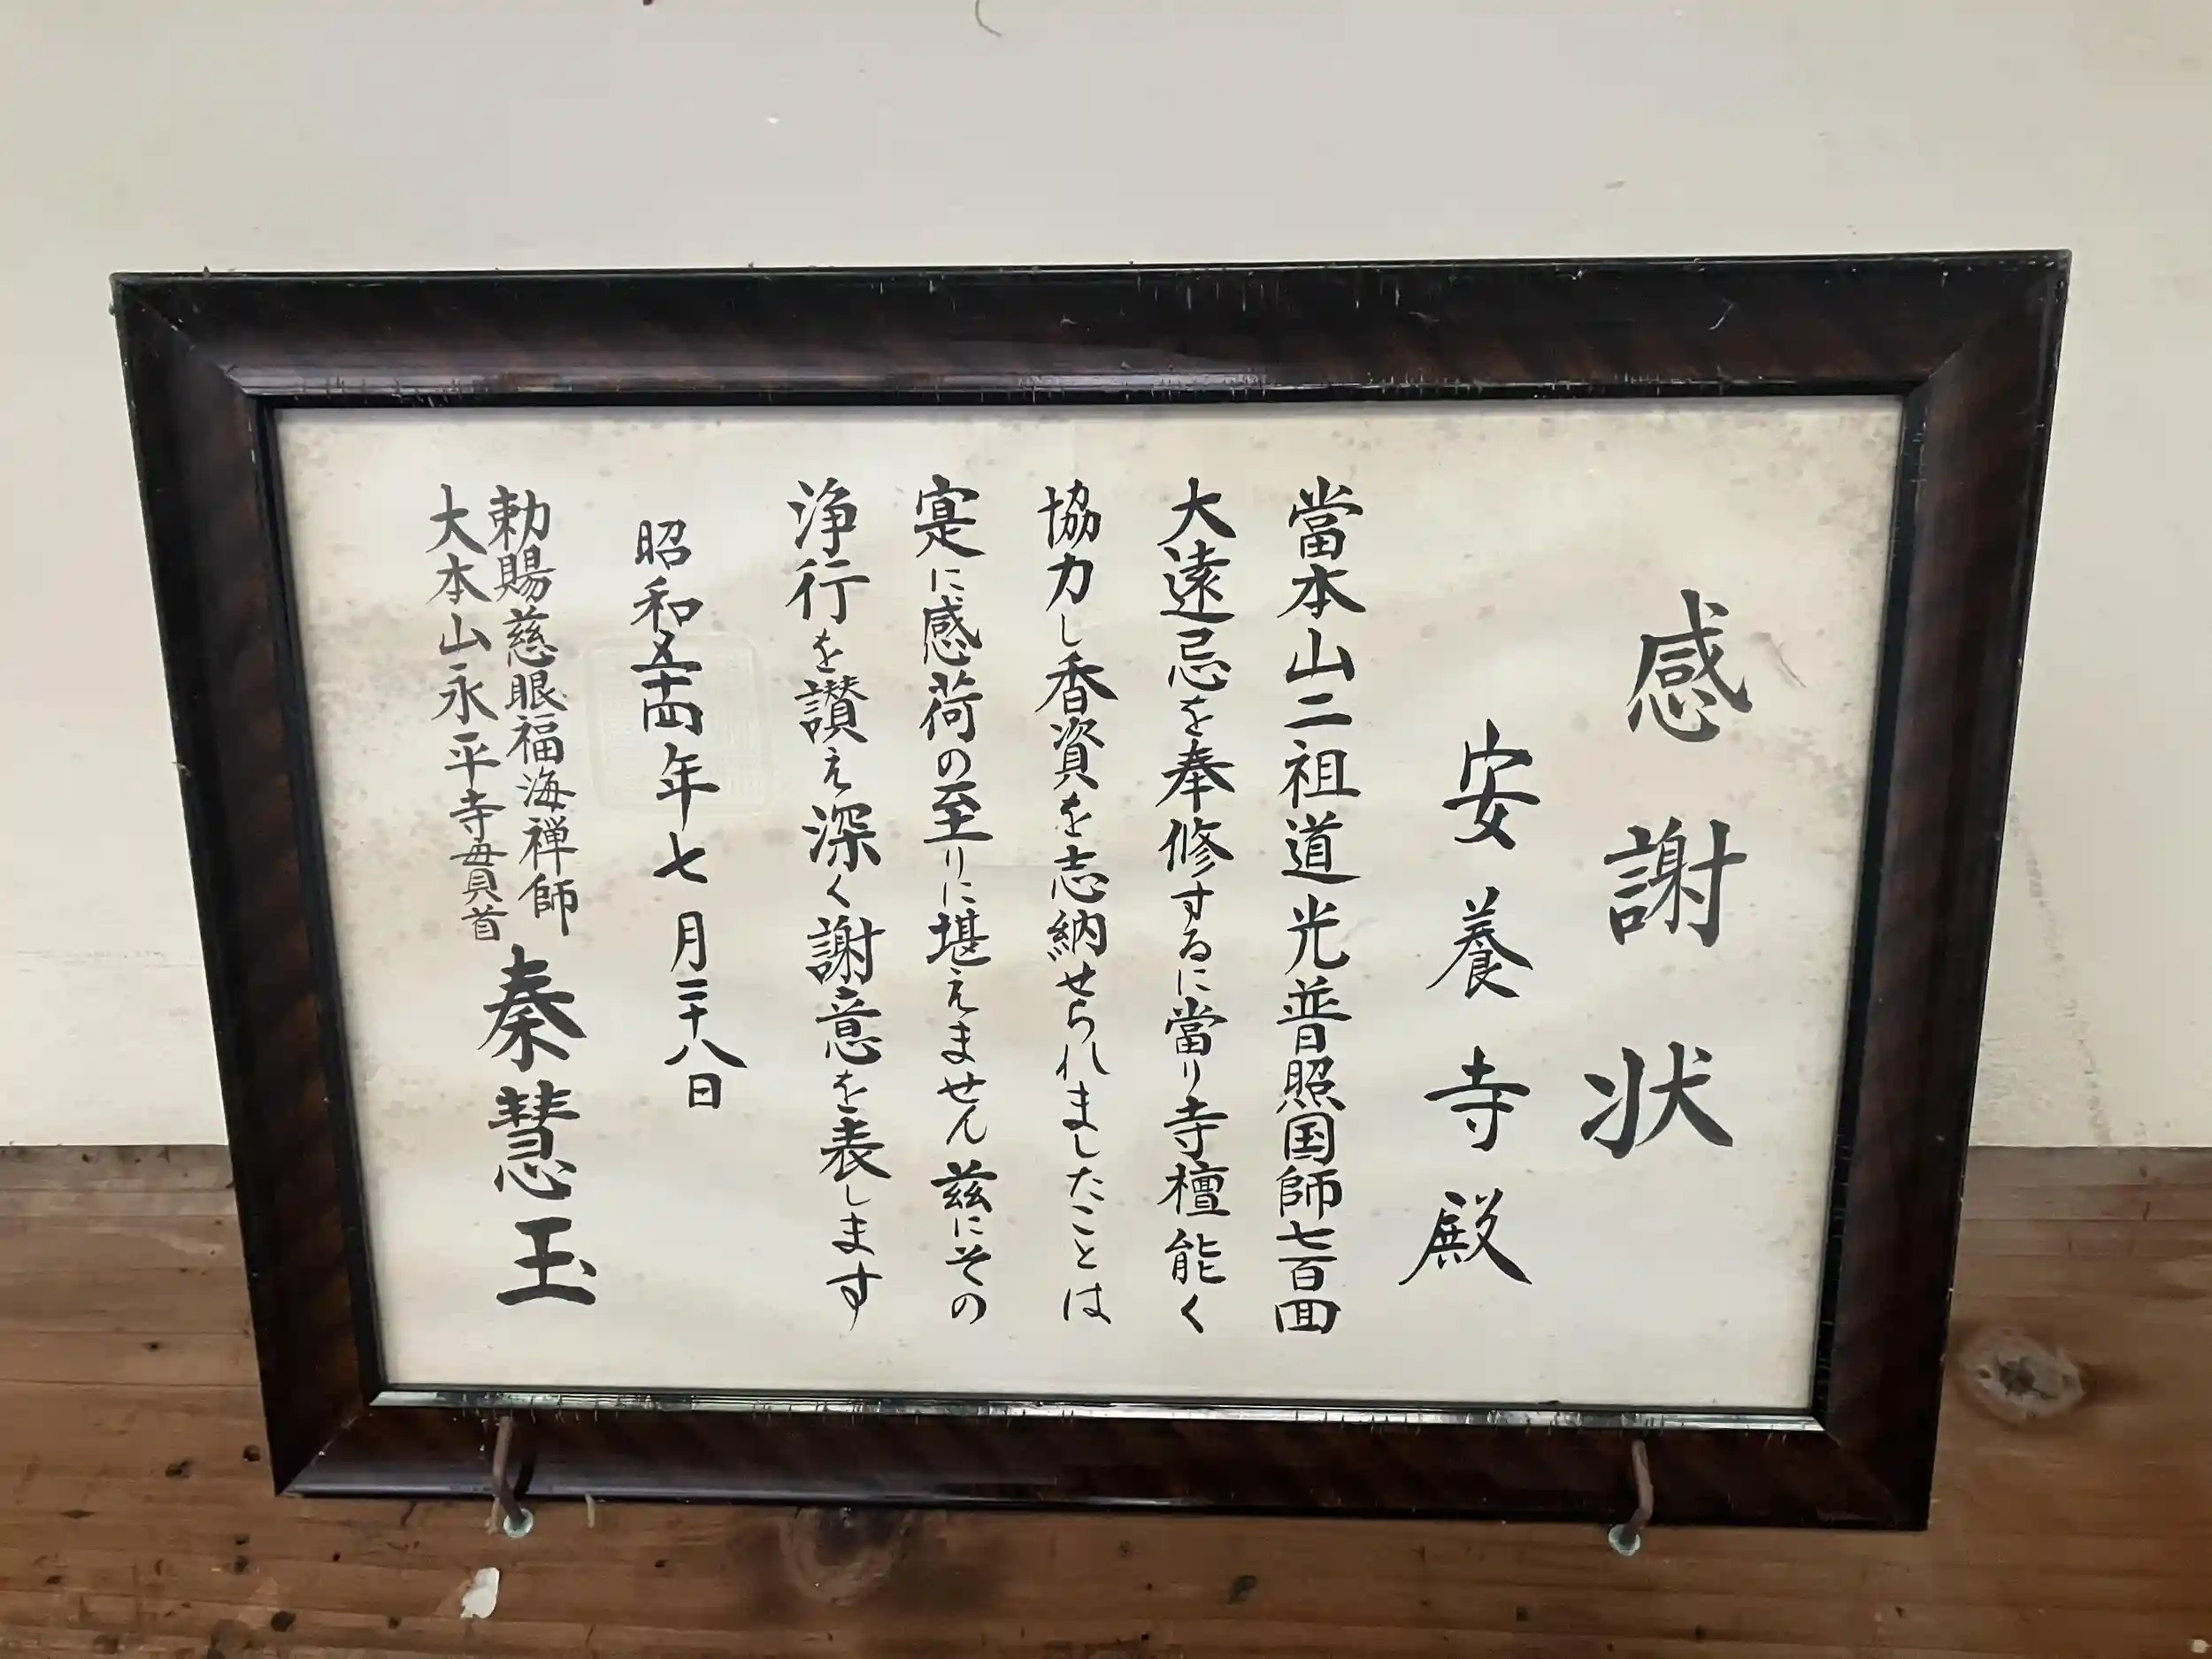 感謝状
安養寺殿
當本山二祖道光普照国師七百回
大遠忌を奉修するに當り寺檀能く
協力し香資を志納せられましたことは
寔に感荷の至りに堪えません茲にその
浄行を讃え深く謝意を表します
昭和五十四年七月二十八日
勅賜慈眼福海禅師
大本山永平寺貫首
秦慧玉